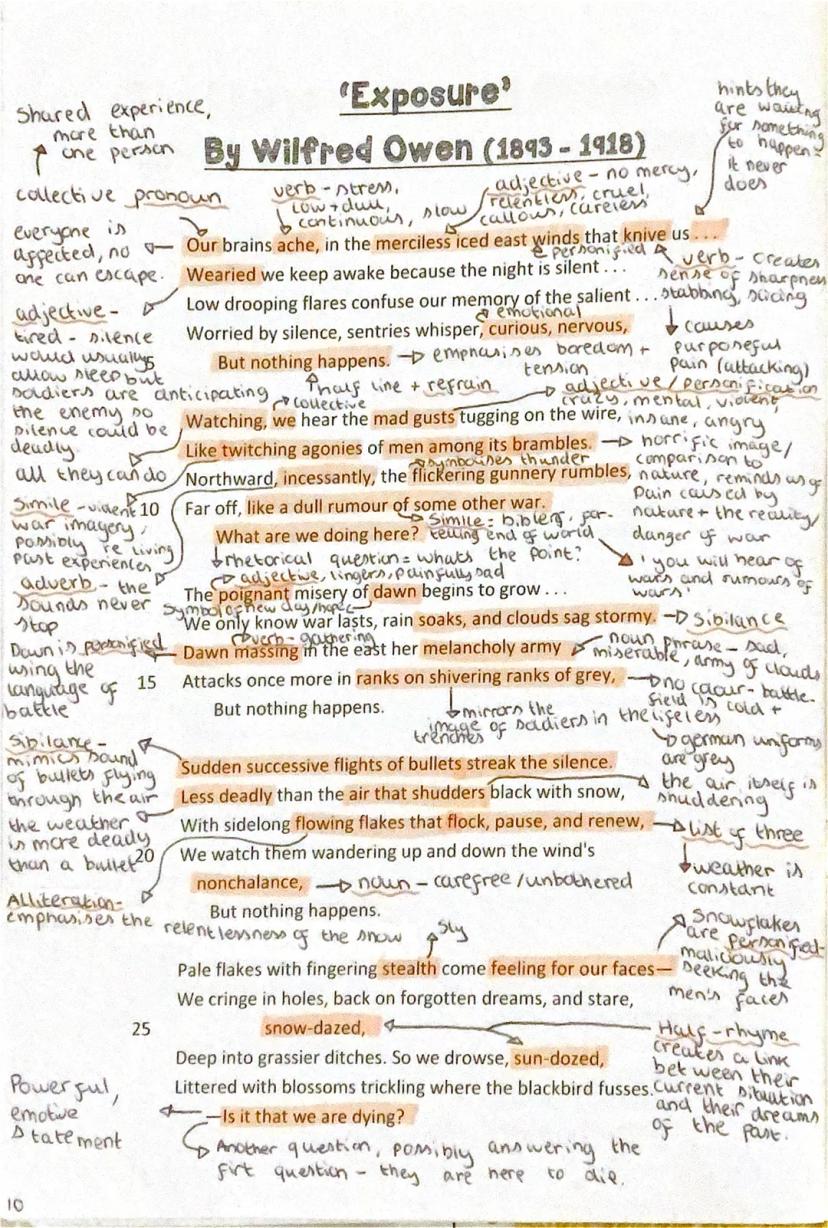 'Exposure'
By Wilfred Owen (1893 - 1918)
Shared experience,
more than
one person
collective pronoun
everyone is
affected, no
one can escape.
verb - stress,
low + dull,
continuous, slow
adjective - no mercy,
relentless, cruel,
callous, careless
hints they
are waiting
for something
to happen -
it never
does
Our brains ache, in the merciless iced east winds that knive us . . .
personified
Wearied we keep awake because the night is silent . . .
Low drooping flares confuse our memory of the salient . . .
emotional
Worried by silence, sentries whisper, curious, nervous,
But nothing happens.
emphasises boredom +
tension
half line + refrain
verb - creates
sense of sharpness
stabbing, slicing
causes
purposeful
pain (attacking)
adjective -
tired - silence
would usually
5
allow sleep but
soldiers are anticipating
the enemy so
silence could be
deadly.
collective
adjective / personification
crazy, mental, violent,
insane, angry
Watching, we hear the mad gusts tugging on the wire,
Like twitching agonies of men among its brambles.
symbolises thunder
Northward, incessantly, the flickering gunnery rumbles,
10
Far off, like a dull rumour of some other war.
Simile = biblery, for-
telling end of world
What are we doing here?
rhetorical question = whats the point?
all they can do
Simile - violent
war imagery,
possibly re living
past experiences
adverb - the
sounds never
stop
horrific image/
comparison to
nature, reminds us of
pain caused by
nature + the reality/
danger of war
'you will hear of
wars and rumours of
wars'
adjective, lingers, painfully sad
The poignant misery of dawn begins to grow . . .
Symbol of new day/hope
We only know war lasts, rain soaks, and clouds sag stormy.
Sibilance
verb - gathering
Dawn massing in the east her melancholy army
noun phrase - sad,
miserable, army of clouds
15
Attacks once more in ranks on shivering ranks of grey,
But nothing happens.
mirrors the
image of soldiers in the
trenches
Dawn is personified
using the
language of
battle
no colour - battle-
field is cold +
lifeless
german uniforms
are grey
Sibilance -
mimics sound
of bullets flying
through the air
Sudden successive flights of bullets streak the silence.
Less deadly than the air that shudders black with snow,
the air itself is
shuddering
With sidelong flowing flakes that flock, pause, and renew,
list of three
weather is
constant
the weather
is more deadly
than a bullet
20
We watch them wandering up and down the wind's
nonchalance,
noun - carefree / unbothered
But nothing happens.
Alliteration -
emphasises the
relentlessness of the snow
sly
Pale flakes with fingering stealth come feeling for our faces—
Snowflakes
are personified -
maliciously
seeking the
men's faces
We cringe in holes, back on forgotten dreams, and stare,
25
snow-dazed,
Deep into grassier ditches. So we drowse, sun-dozed,
Littered with blossoms trickling where the blackbird fusses.
Half - rhyme
creates a link
between their
current situation
and their dreams
of the past.
—Is it that we are dying?
Powerful,
emotive
statement
Another question, possibly answering the
firt question - they are here to die.
10